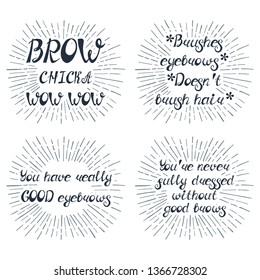 BROW
CHICKA
WOW WOW
*Brushes
eyebrows*
*Doesn't
brush hair*
You have really
GOOD eyebrows
You're never
fully dressed
without
good brows
shutterstock.com · 1366728302